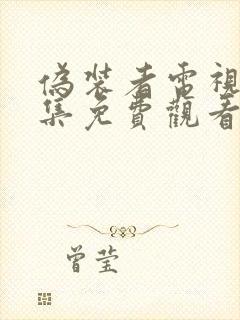 偽裝者電視
集免費觀看
曾莹